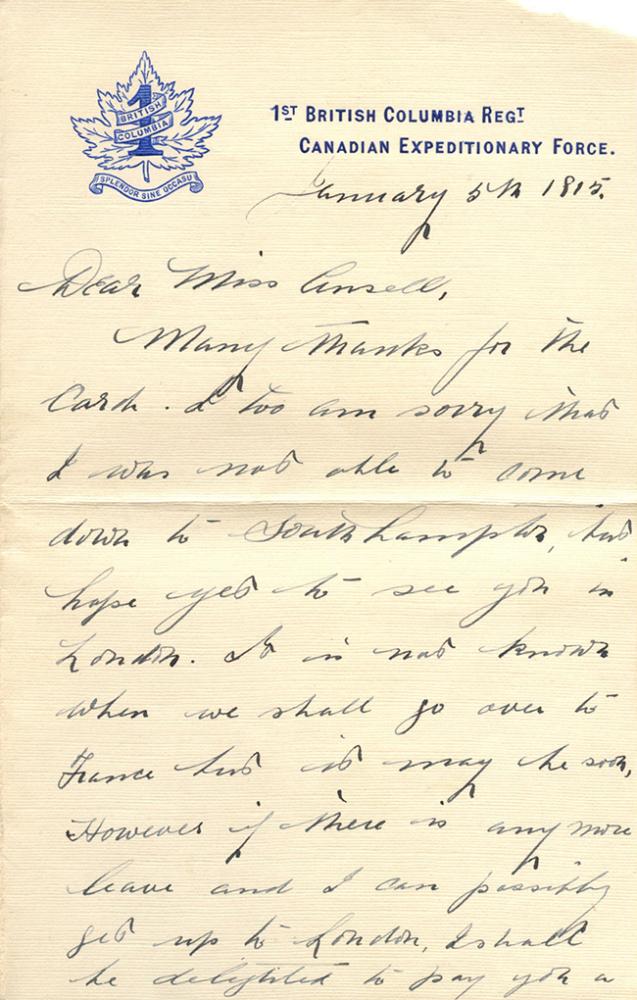 1
BRITISH
COLUMBIA
SPLENDOR SINE OCCASU
1ST BRITISH COLUMBIA REGT
CANADIAN EXPEDITIONARY FORCE.
January 5th 1915.
Dear Miss Ansell,
Many thanks for the
Card. I too am sorry that
I was not able to come
down to Southampton, but
hope yet to see you in
London. It is not known
when we shall go over to
France but it may be soon,
However if there is any more
leave and I can possibly
get up to London, I shall
be delighted to pay you a